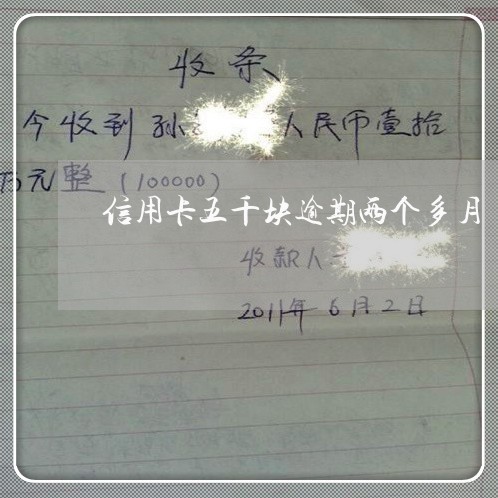 收条
今收到孙 人民币壹拾
万元整(100000)
信用卡五千块逾期两个多月
收款人
2011年6月2日